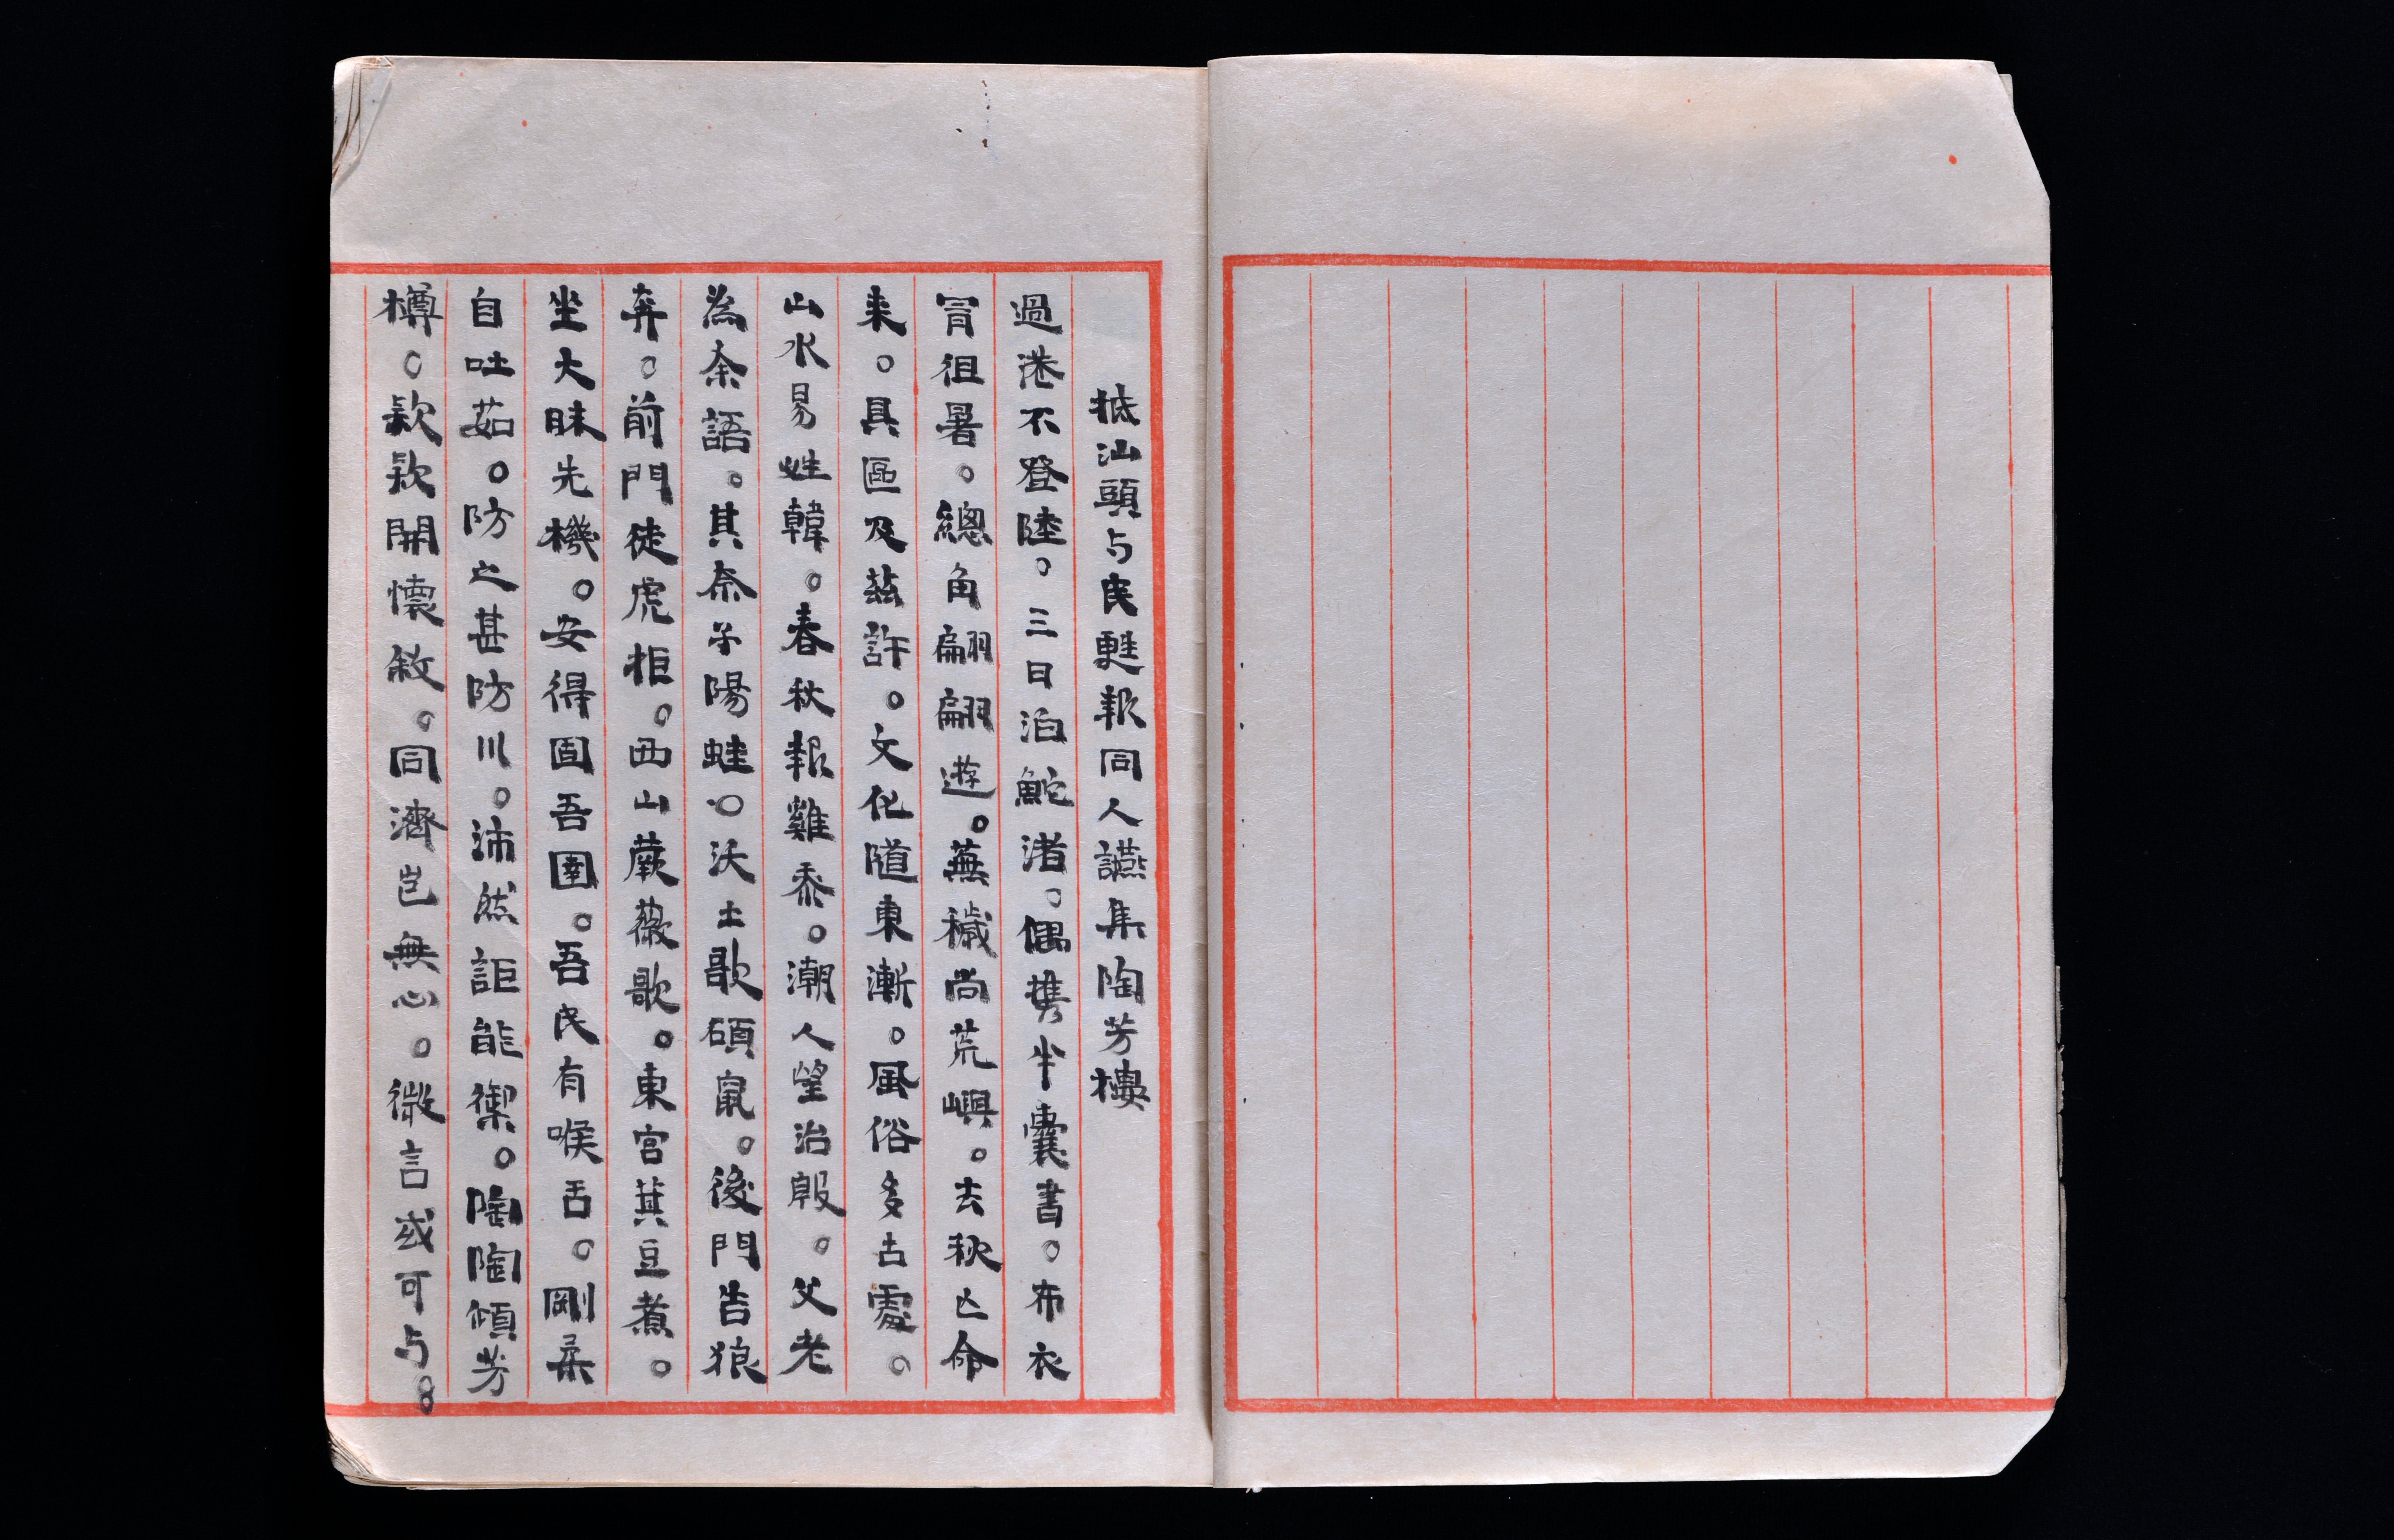 抵汕頭与民甦報同人讌集陶芳樓
過港不登陸。三日泊鮀渚。偶携半囊書。布衣
冐徂暑。總角翩翩遊。蕪穢尚荒嶼。去秋亡命
来。具區及茲許。文化隨東漸。風俗多古處。
山水易姓韓。春秋報雞黍。潮人望治殷。父老
為余語。其奈子陽蛙。沃土歌碩鼠。後門告狼
奔。前門徒虎拒。西山蕨薇歌。東宮萁豆煮。
坐大昧先機。安得固吾圉。吾民有喉舌。剛柔
自吐茹。防之甚防川。沛然詎能禦。陶陶傾芳
樽。款款開懷敘。同濟豈無心。微言或可与。